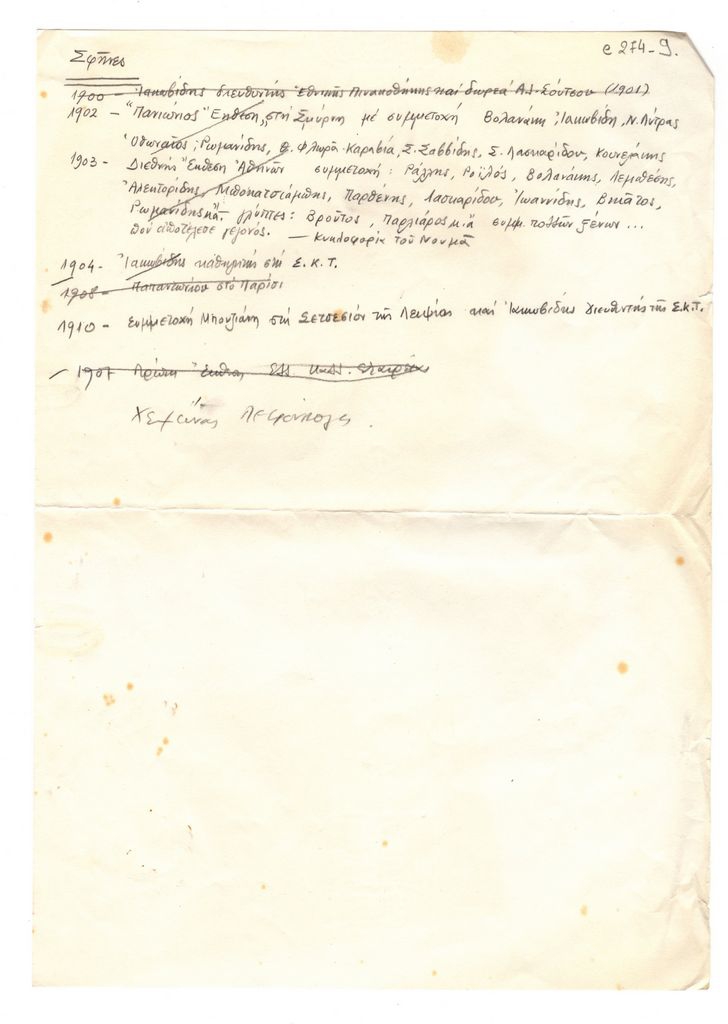 Σφῆνες
e 274-9.
1900 - Ἰακωβίδης διευθυντής Ἐθνικῆς Πινακοθήκης καί δωρεά Ἀλ. Σούτσου (1901)
1902 - "Πανιώνιος" Ἔκθεση, στή Σμύρνη μέ συμμετοχή Βολανάκη, Ἰακωβίδη, Ν. Λύτρας
Ὀθωναῖος, Ρωμανίδης, Φλωρᾶ-Καραβία, Σ. Σαββίδης, Σ. Λασκαρίδου, Κουνελάκης
1903 - Διεθνής Ἔκθεση Ἀθηνῶν συμμετοχή: Ράλλης, Ροϊλός, Βολανάκης, Λεμπέσης,
Ἀλεκτορίδης, Μποκατσιάμπης, Παρθένης, Λασκαρίδου, Ἰωαννίδης, Βικάτος,
Ρωμανίδης κ.ἄ. γλύπτες: Βροῦτος, κ.ἄ συμμ. πολλῶν ξένων ...
πού ἀποτέλεσε γεγονός. — Κυκλοφορία τοῦ Νουμᾶ
1904 - Ἰακωβίδης καθηγητής στή Σ.Κ.Τ.
1908 - Παπαντωνίου στό Παρίσι
1910 - Συμμετοχή Μπουζιάνη στή Σετσεσιόν τῆς Λειψίας καί Ἰακωβίδης διευθυντής τῆς Σ.Κ.Τ.
1907 Πρώτη Ἔκθεση Ἑλλ. Καλλ. Ἑταιρείας